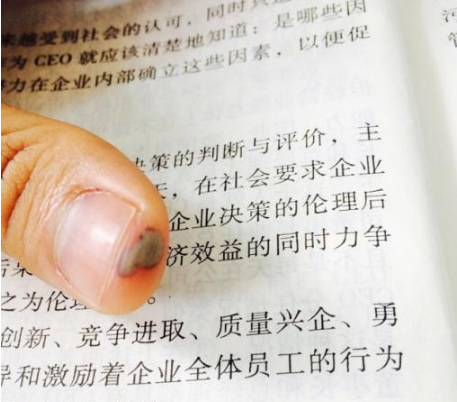 来越受到社会的认可，同时只
为 CEO 就应该清楚地知道：是哪些因
力在企业内部确立这些因素，以便促
决策的判断与评价，主
天，在社会要求企业
企业决策的伦理后
济效益的同时力争
之为伦理
创新、竞争进取、质量兴企、勇
导和激励着企业全体员工的行为
河
管